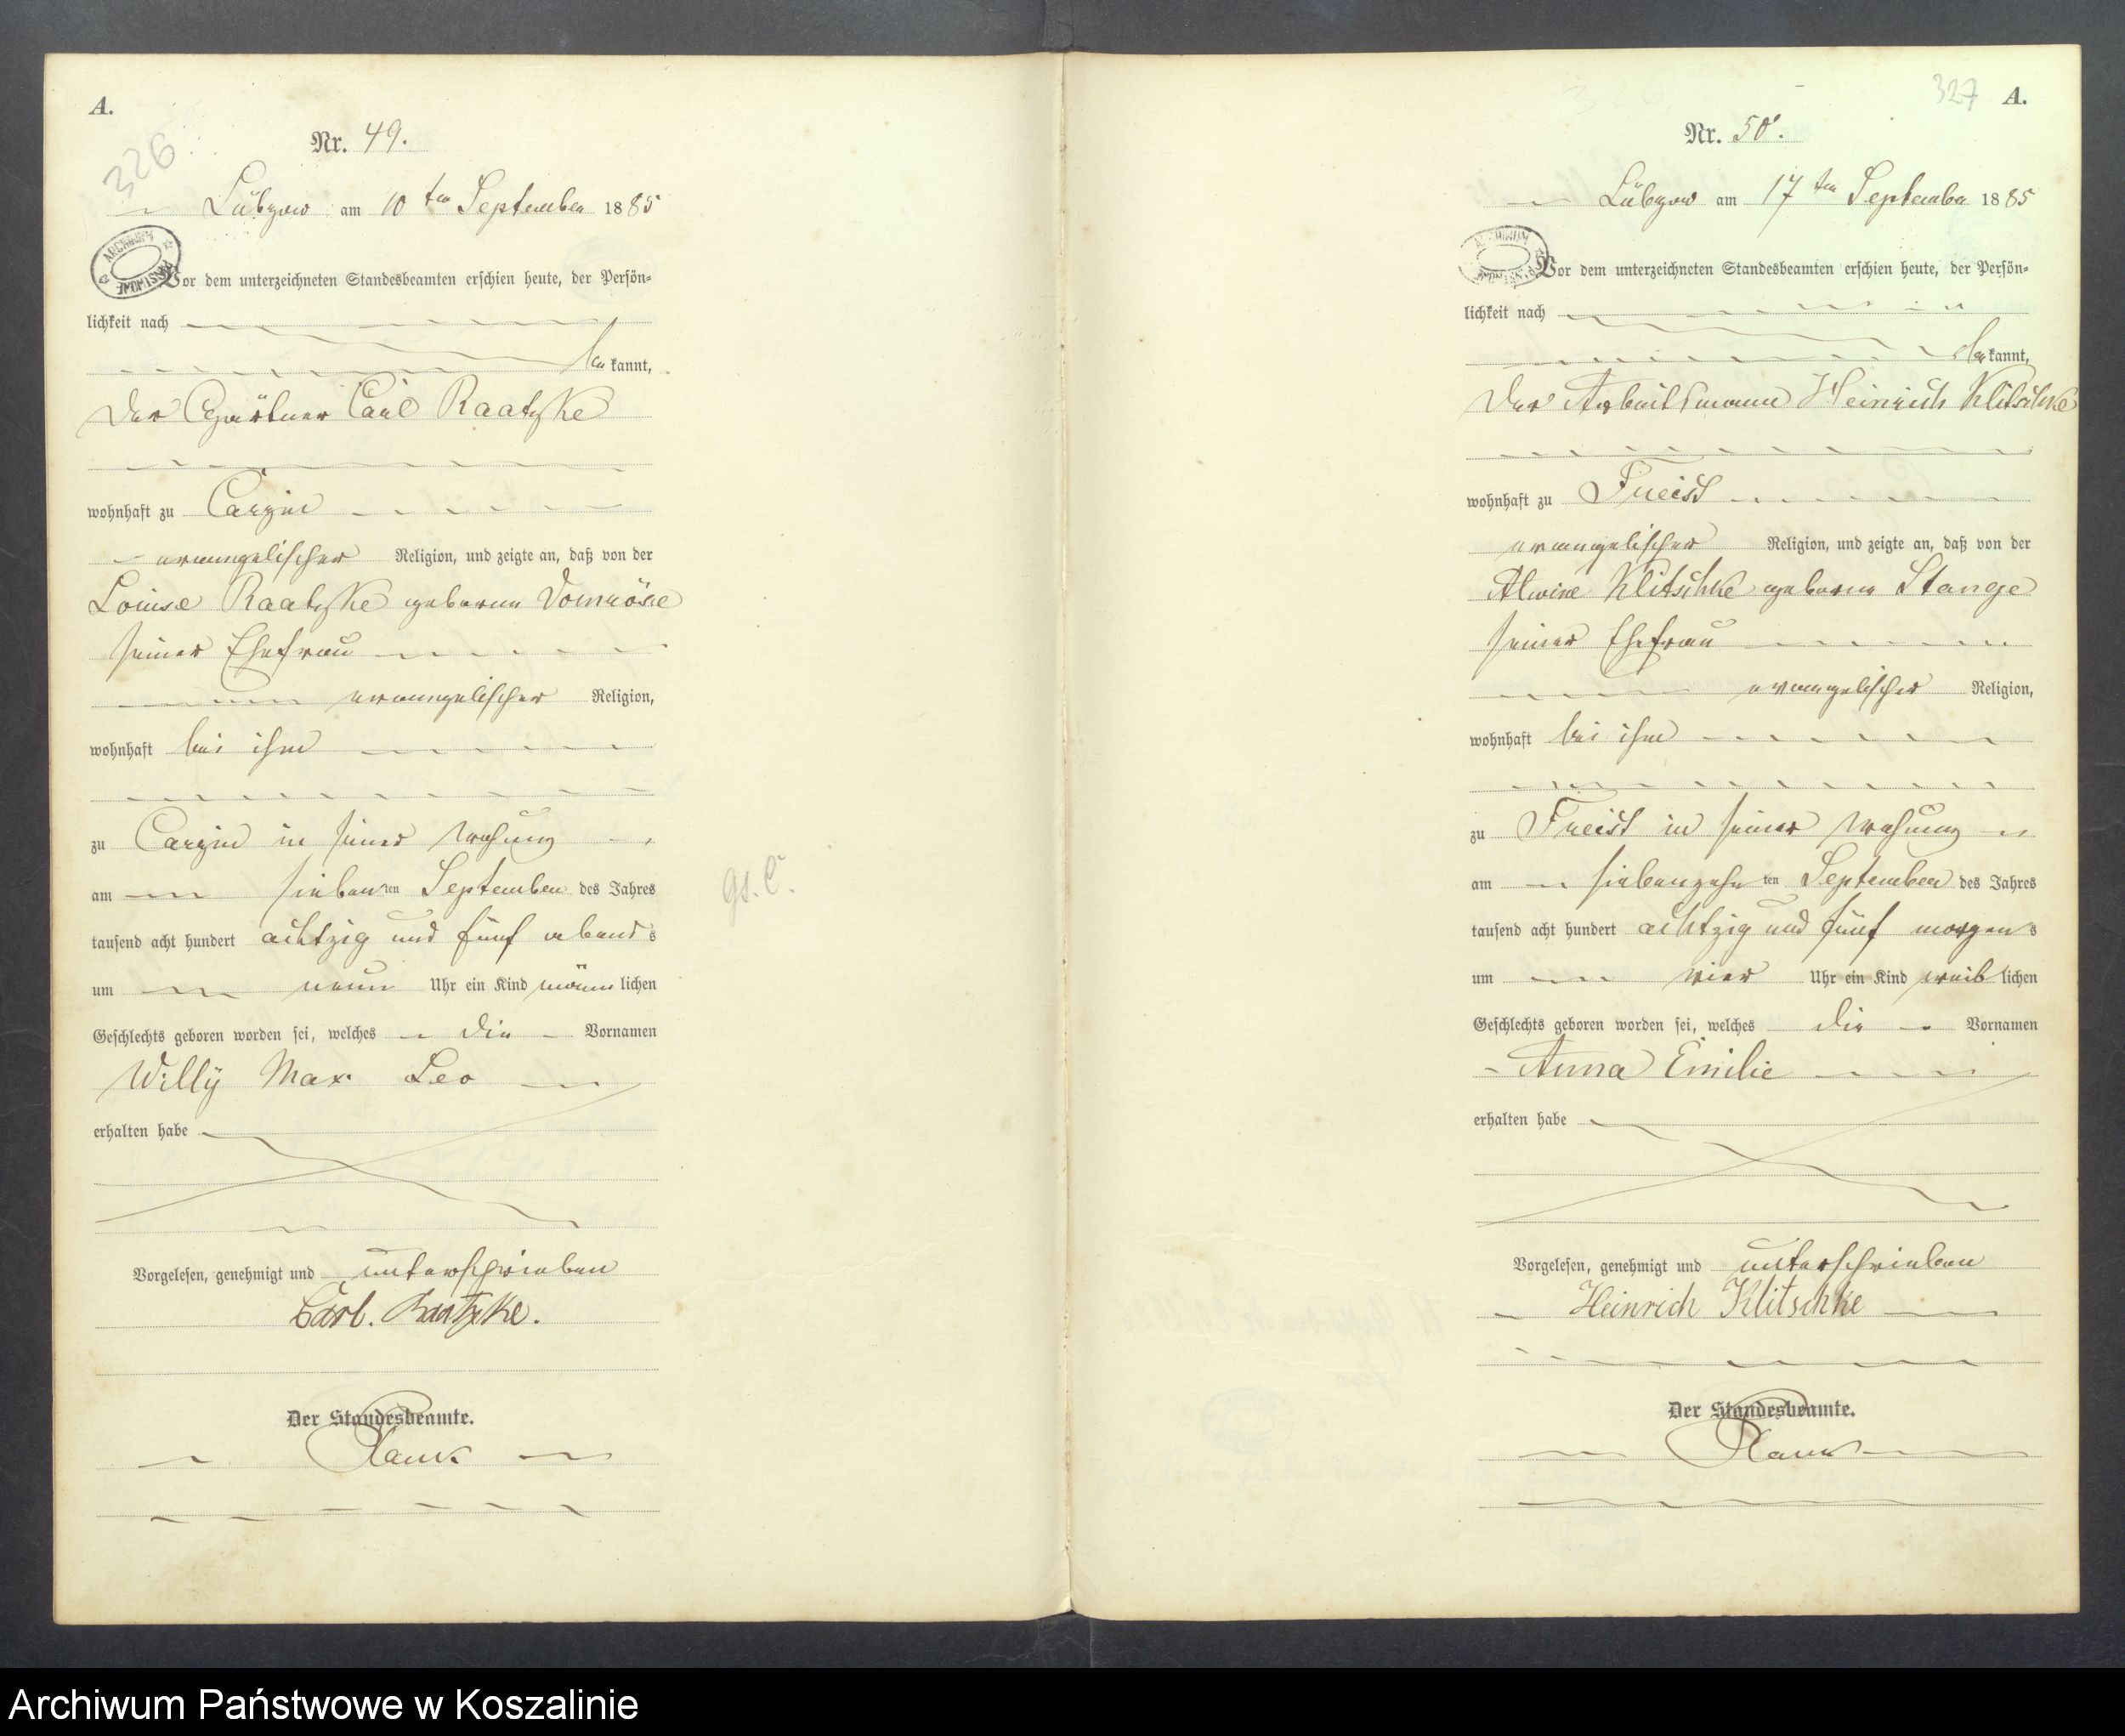 A.
326
Nr. 49.
Lübzow am 10 ten September 1885
ARCHIWUM
Vor dem unterzeichneten Standesbeamten erschien heute, der Persön-
lichkeit nach
bekannt,
der Gärtner Carl Raatzke
wohnhaft zu Carzin
evangelischer Religion, und zeigte an, daß von der
Louise Raatzke geborene Domröse
seiner Ehefrau
evangelischer Religion,
wohnhaft bei ihm
zu Carzin in seiner Wohnung
am siebenten September des Jahres
tausend acht hundert achtzig und fünf abends
um neun Uhr ein Kind männlichen
Geschlechts geboren worden sei, welches die Vornamen
Willy Max Leo
erhalten habe
Vorgelesen, genehmigt und unterschrieben
Carl. Raatzke.
Der Standesbeamte.
gs. C.
327 A.
Nr. 50.
Lübzow am 17 ten September 1885
ARCHIWUM
Vor dem unterzeichneten Standesbeamten erschien heute, der Persön-
lichkeit nach
bekannt,
der Arbeitsmann Heinrich Klitschke
wohnhaft zu Freist
evangelischer Religion, und zeigte an, daß von der
Alwine Klitschke geborne Stange
seiner Ehefrau
evangelischer Religion,
wohnhaft bei ihm
zu Freist in seiner Wohnung
am siebenzehnten September des Jahres
tausend acht hundert achtzig und fünf morgens
um vier Uhr ein Kind weiblichen
Geschlechts geboren worden sei, welches die Vornamen
Anna Emilie
erhalten habe
Vorgelesen, genehmigt und unterschrieben
Heinrich Klitschke
Der Standesbeamte.
Archiwum Państwowe w Koszalinie